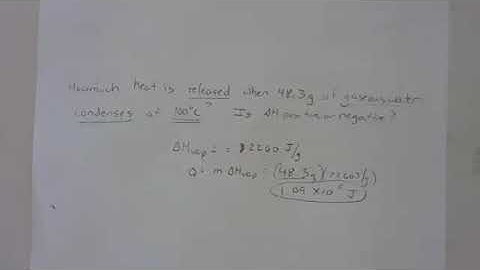 How much heat is released when 48.3g of gaseous water
condenses at 100°C? Is ΔH positive or negative?
ΔHvap = 2260 J/g
Q = m ΔHvap = (48.3g)(2260J/g)
1.09 X10⁵ J